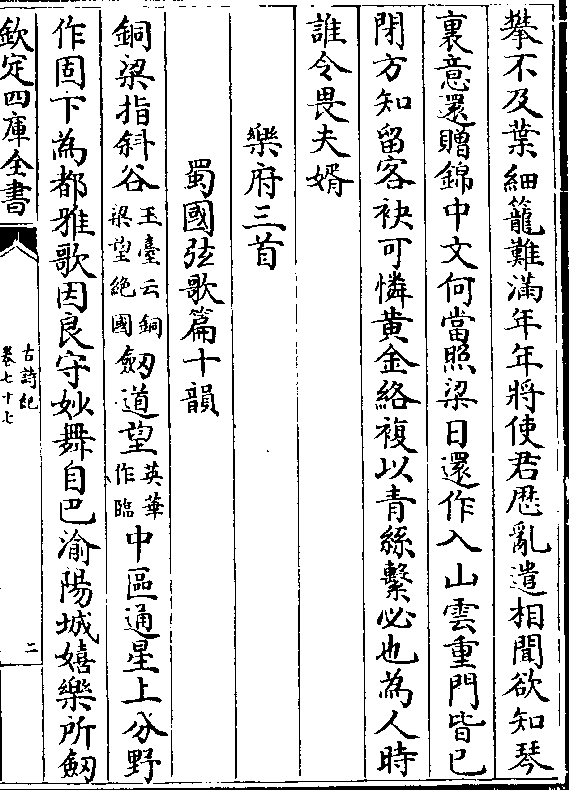 攀不及葉細籠難滿年年將使君歴亂遣相聞欲知琴
裏意還贈錦中文何當照梁日還作入山雲重門皆已
閉方知留客袂可憐黄金絡複以青絲繫必也為人時
誰令畏夫婿
樂府三首
蜀國弦歌篇十韻
銅梁指斜谷玉臺云銅梁望絶國劒道望英華作臨中區通星上分野
作固下為都雅歌因良守妙舞自巴渝陽城嬉樂所劒
欽定四庫全書
古詩紀
卷七十七
二